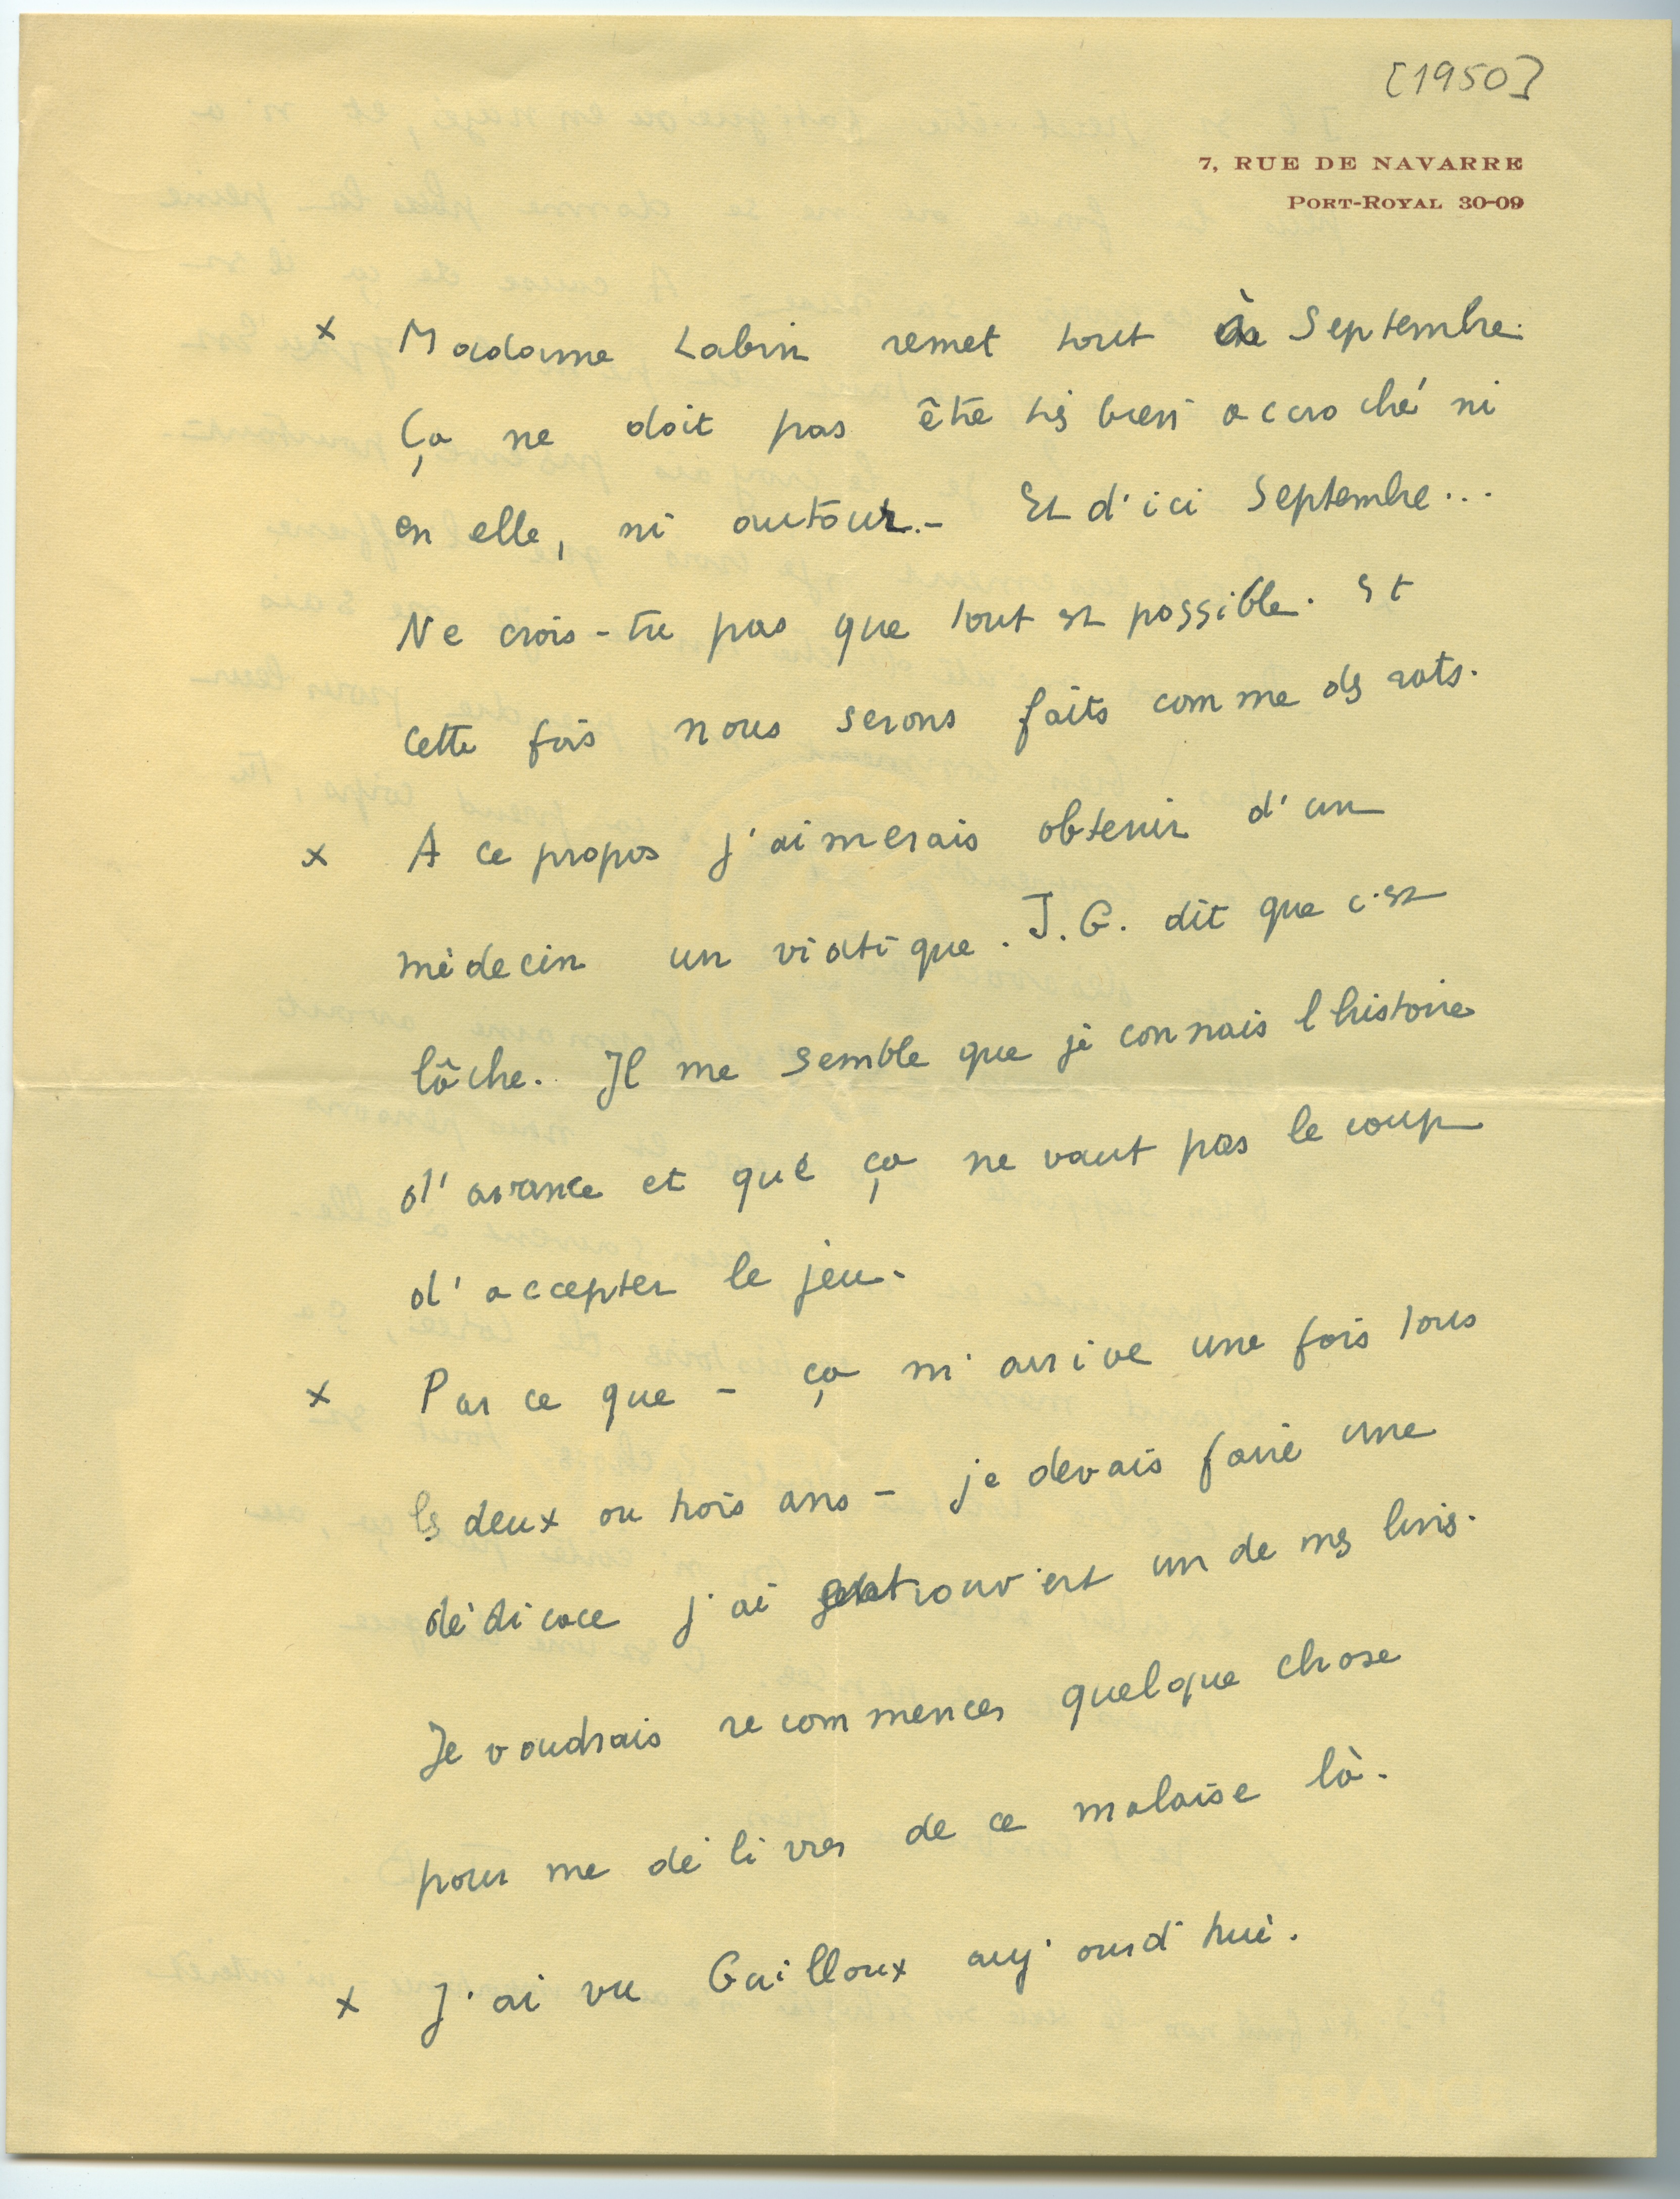 [1950]
7, RUE DE NAVARRE
PORT-ROYAL 30-09
x Madame Labin remet tout à Septembre.
Ça ne doit pas être très bien accroché ni
en elle, ni autour. - Et d'ici Septembre...
Ne crois-tu pas que tout est possible. Et
cette fois nous serons faits comme des rats.
x A ce propos j'aimerais obtenir d'un
médecin un viatique. J.G. dit que c'est
lâche. Il me semble que je connais l'histoire
d'avance et que ça ne vaut pas le coup
d'accepter le jeu.
x Par ce que - ça m'arrive une fois tous
les deux ou trois ans - je devais faire une
dédicace j'ai entrouvert un de mes livres.
Je voudrais recommencer quelque chose
pour me délivrer de ce malaise là.
x J'ai vu Guilloux aujourd'hui.